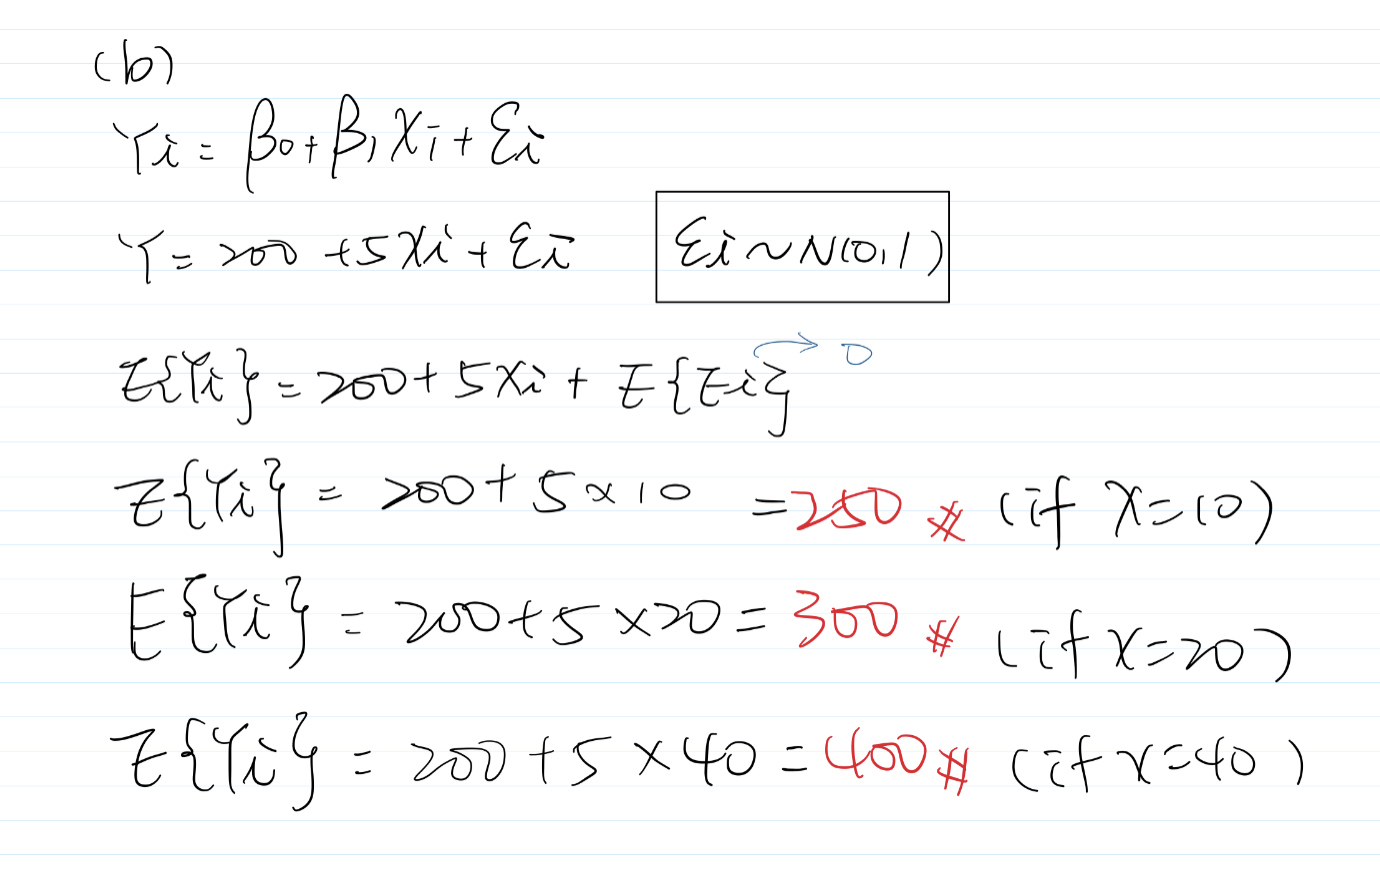 (b)
Yi = β0 + β1 Xi + εi
Y = 200 + 5Xi + εi    εi ~ N(0,1)
E{Yi} = 200 + 5Xi + E{εi} → 0
E{Yi} = 200 + 5 × 10 = 250 # (if X=10)
E{Yi} = 200 + 5 × 20 = 300 # (if X=20)
E{Yi} = 200 + 5 × 40 = 400 # (if X=40)